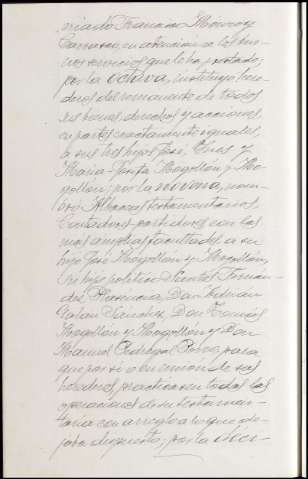 criado Francisco
Carrasco, en atención a los bue-
nos servicios que le ha prestado;
por la octava, instituyó here-
deros del remanente de todos
sus bienes, derechos y acciones,
en partes exactamente iguales,
a sus tres hijos José, Inés y
María-Josefa Mogollón y Mo-
gollón; por la novena, nom-
bró Albaceas testamentarios
Contadores-partidores con las
mas amplias facultades a su
hijo José Mogollón y Mogollón,
su hijo político Fernán-
dez Don
Sánchez, Don Tomás
Mogollón y Mogollón y Don
Manuel para
que por si o en union de sus
practiquen todas las
operaciones de su testamen-
taria con arreglo a lo que de-
jara dispuesto; por la